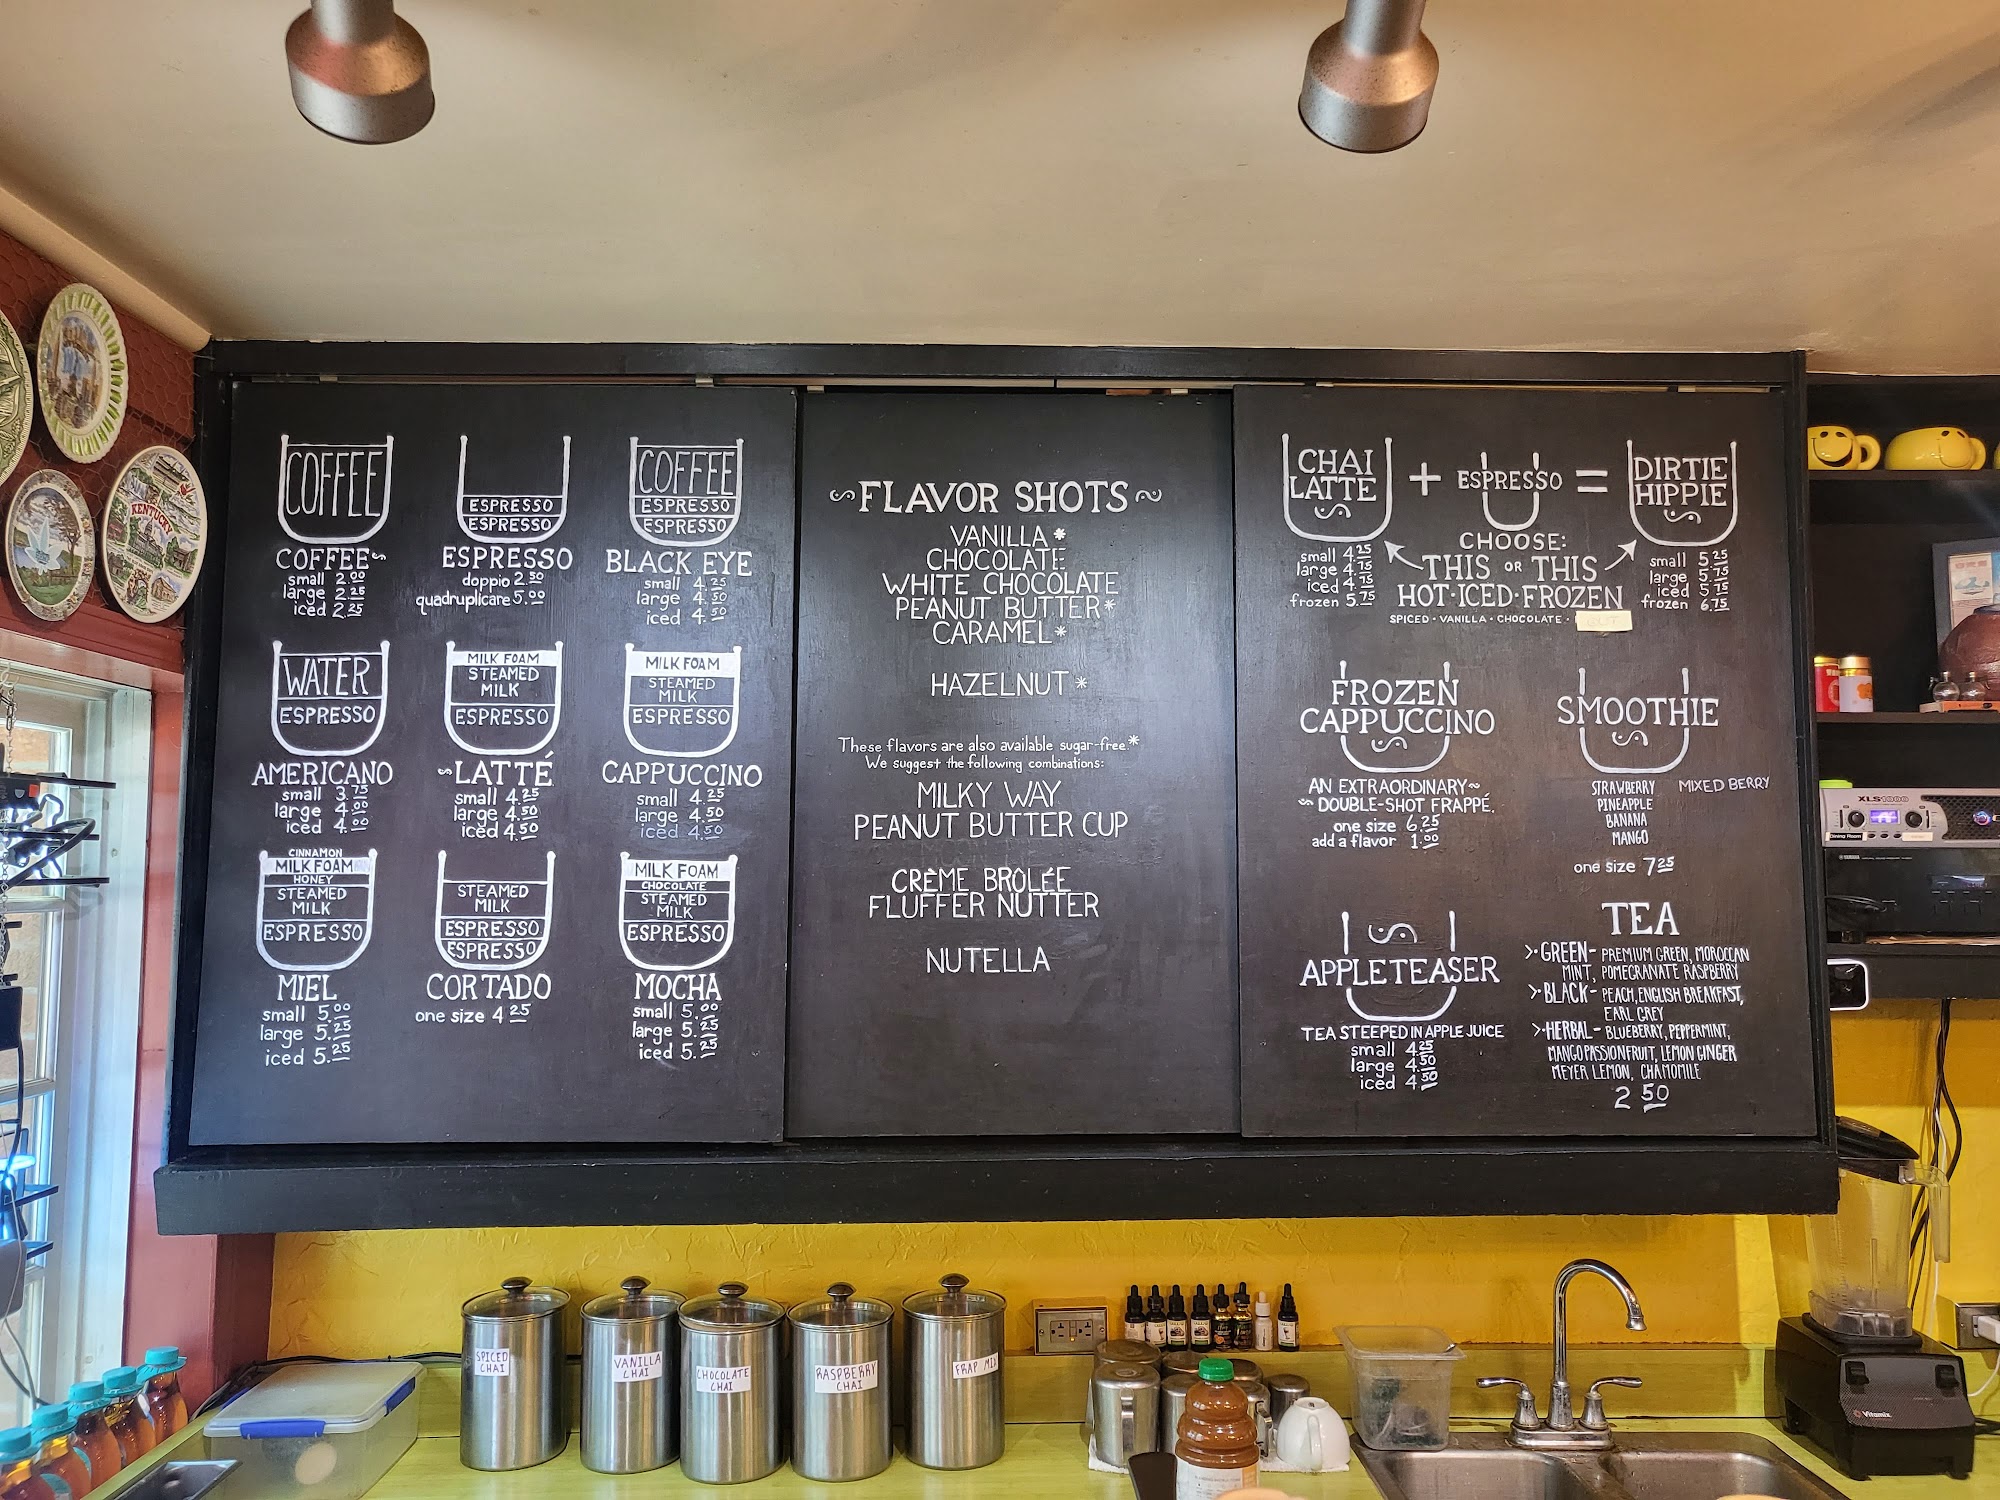 COFFEE
COFFEE
small 2.00
large 2.25
iced 2.25
ESPRESSO
ESPRESSO
ESPRESSO
doppio 2.50
quadruplicare 5.00
COFFEE
ESPRESSO
ESPRESSO
BLACK EYE
small 4.25
large 4.50
iced 4.50
WATER
ESPRESSO
AMERICANO
small 3.75
large 4.00
iced 4.00
MILK FOAM
STEAMED
MILK
ESPRESSO
LATTÉ
small 4.25
large 4.50
iced 4.50
MILK FOAM
STEAMED
MILK
ESPRESSO
CAPPUCCINO
small 4.25
large 4.50
iced 4.50
CINNAMON
MILK FOAM
HONEY
STEAMED
MILK
ESPRESSO
MIEL
small 5.00
large 5.25
iced 5.25
STEAMED
MILK
ESPRESSO
ESPRESSO
CORTADO
one size 4.25
MILK FOAM
CHOCOLATE
STEAMED
MILK
ESPRESSO
MOCHA
small 5.00
large 5.25
iced 5.25
FLAVOR SHOTS
VANILLA *
CHOCOLATE
WHITE CHOCOLATE
PEANUT BUTTER*
CARAMEL*
HAZELNUT *
These flavors are also available sugar-free.*
We suggest the following combinations:
MILKY WAY
PEANUT BUTTER CUP
CRÈME BRÛLÉE
FLUFFER NUTTER
NUTELLA
CHAI
LATTE
+ ESPRESSO =
DIRTIE
HIPPIE
small 4.25
large 4.75
iced 4.75
frozen 5.75
CHOOSE:
THIS OR THIS
HOT·ICED·FROZEN
SPICED · VANILLA · CHOCOLATE ·
small 5.25
large 5.75
iced 5.75
frozen 6.75
FROZEN
CAPPUCCINO
AN EXTRAORDINARY
DOUBLE-SHOT FRAPPÉ.
one size 6.25
add a flavor 1.00
SMOOTHIE
STRAWBERRY
PINEAPPLE
BANANA
MANGO
MIXED BERRY
one size 7.25
APPLETEASER
TEA STEEPED IN APPLE JUICE
small 4.25
large 4.50
iced 4.50
TEA
GREEN- PREMIUM GREEN, MOROCCAN
MINT, POMEGRANATE RASPBERRY
BLACK- PEACH, ENGLISH BREAKFAST,
EARL GREY
HERBAL- BLUEBERRY, PEPPERMINT,
MANGO PASSIONFRUIT, LEMON GINGER
MEYER LEMON, CHAMOMILE
2.50
KENTUCKY
XLS1000
Dining Room
YAMAHA
SPICED
CHAI
VANILLA
CHAI
CHOCOLATE
CHAI
RASPBERRY
CHAI
FRAP MIX
Vitamix